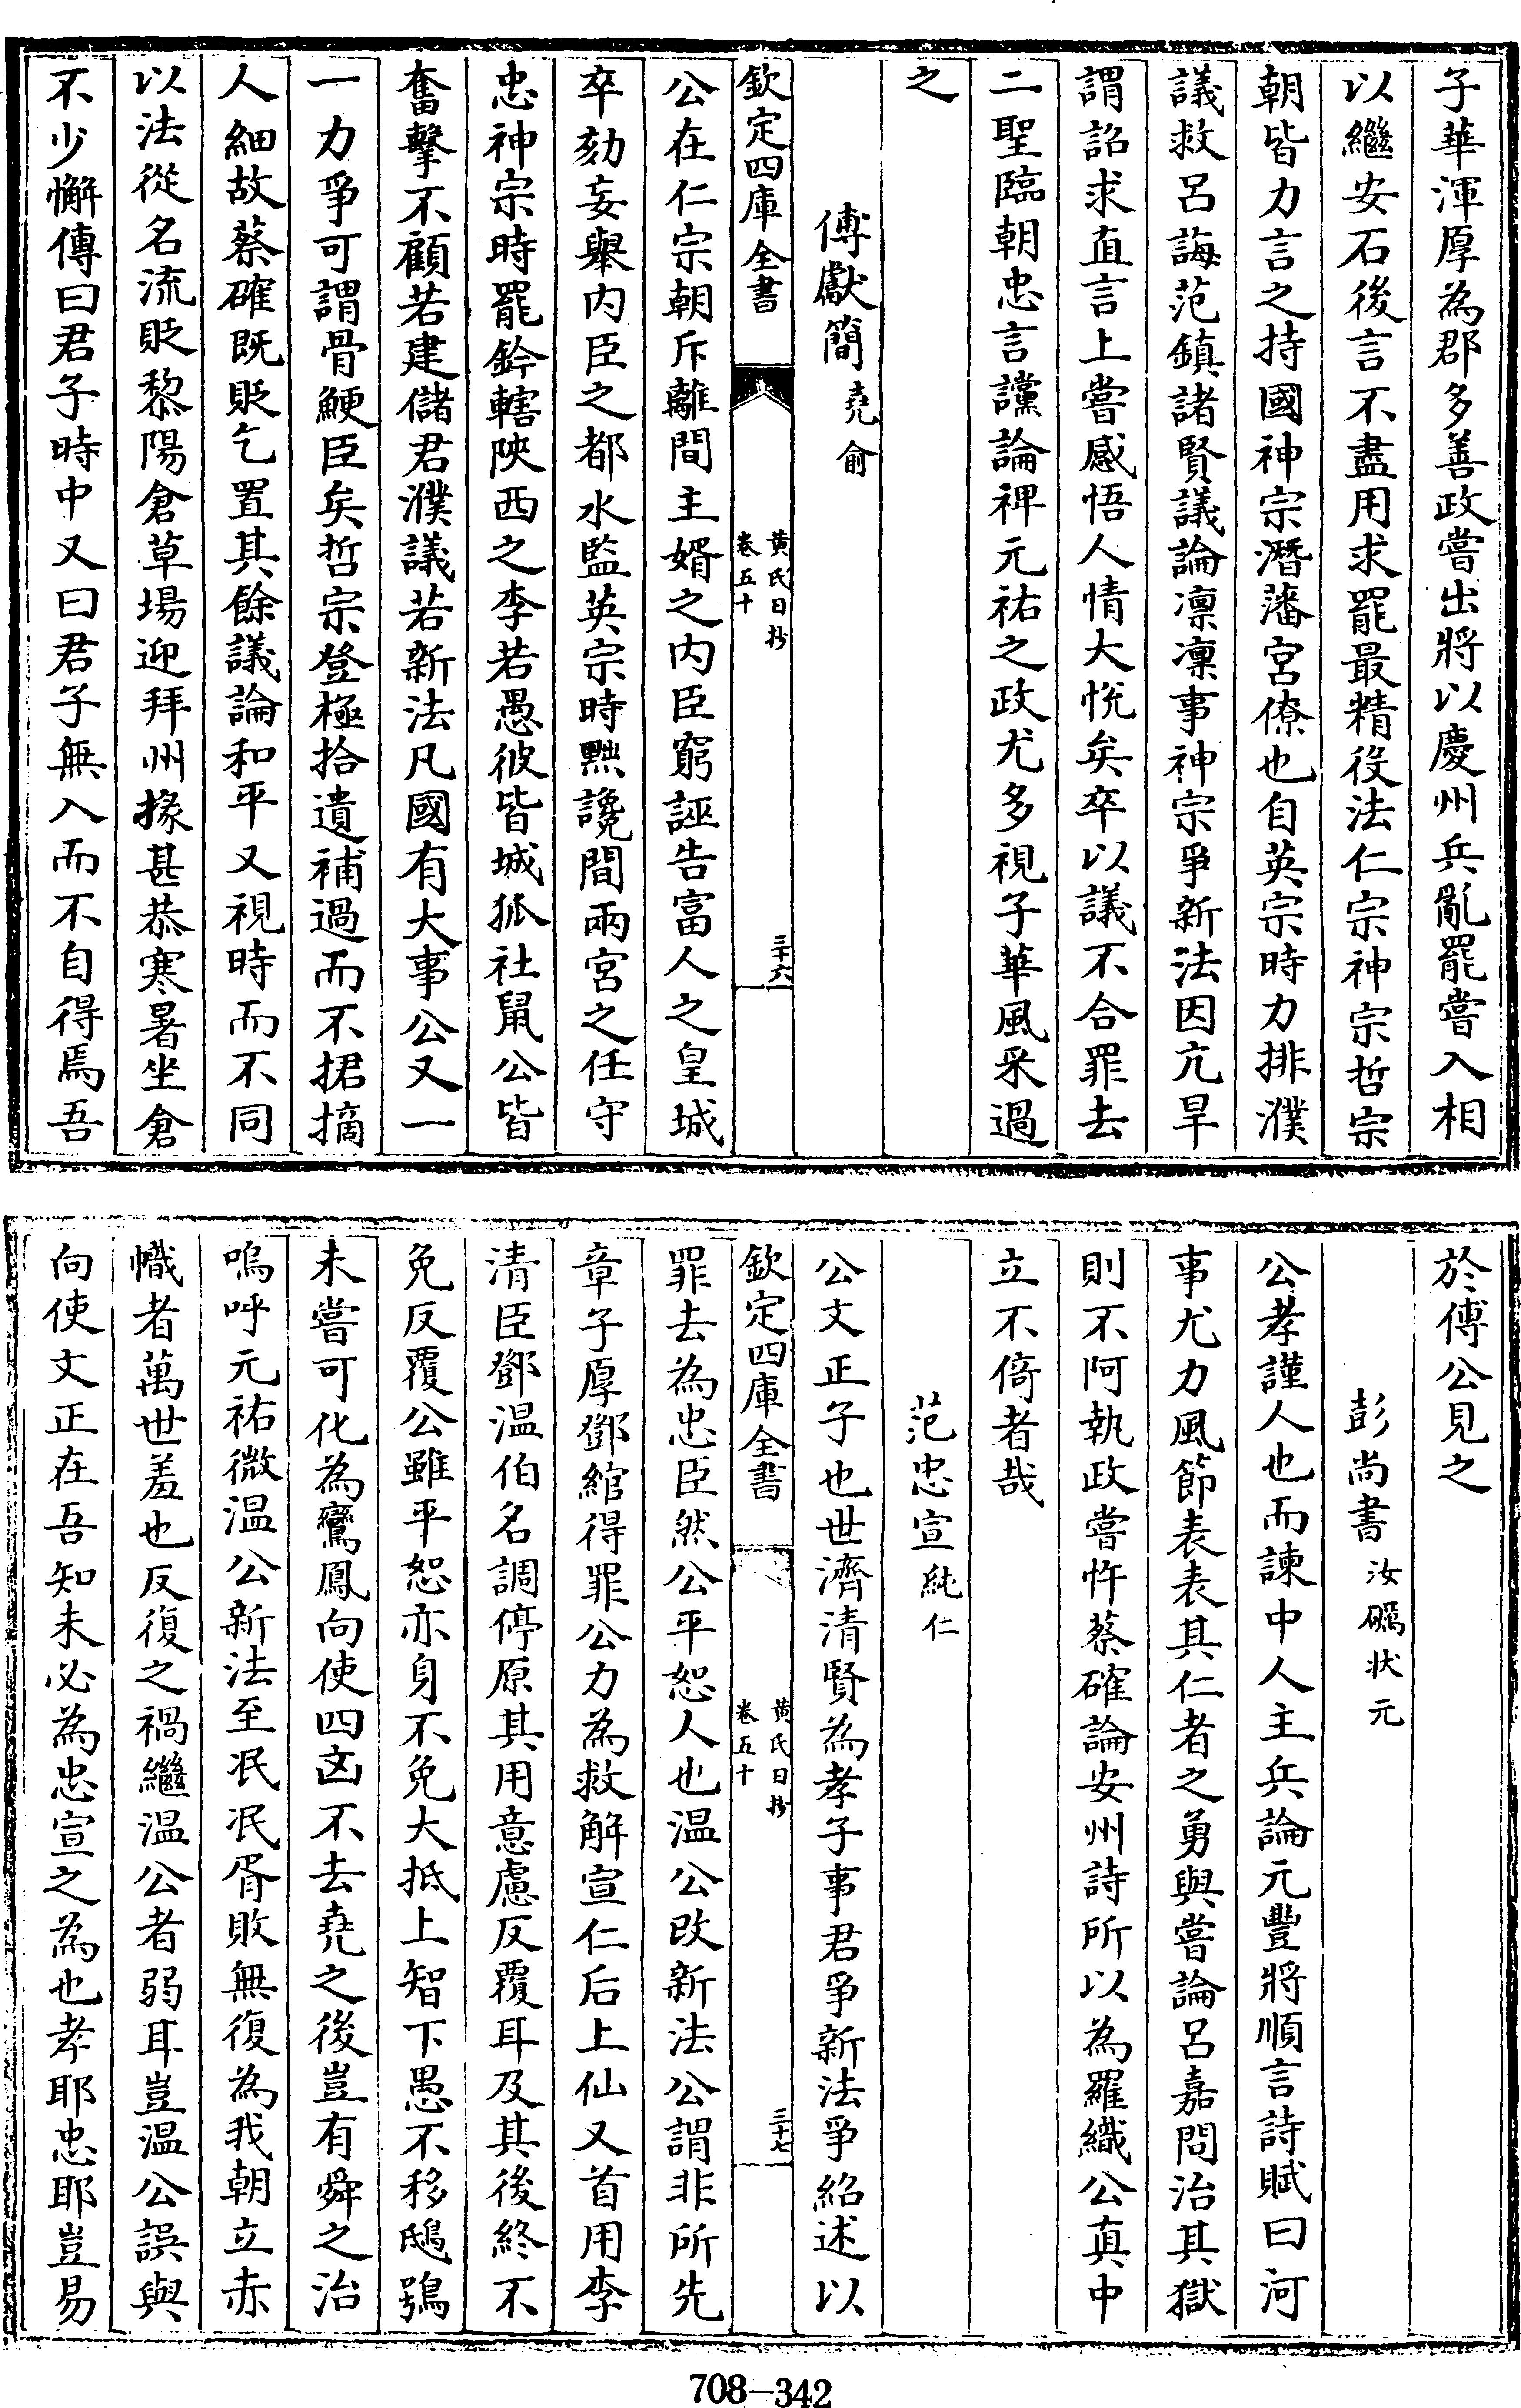 子華渾厚為郡多善政嘗出將以慶州兵亂罷嘗入相
以繼安石後言不盡用求罷最精役法仁宗神宗哲宗
朝皆力言之持國神宗潛藩宮僚也自英宗時力排濮
議救呂誨范鎮諸賢議論凛凛事神宗爭新法因亢旱
謂詔求直言上嘗感悟人情大悅矣卒以議不合罪去
二聖臨朝忠言讜論裨元祐之政尤多視子華風采過
之
傅獻簡堯俞
欽定四庫全書
黃氏日抄
卷五十
三十六
公在仁宗朝斥離間主婿之内臣窮誣告富人之皇城
卒劾妄舉内臣之都水監英宗時黜讒間兩宮之任守
忠神宗時罷鈐轄陜西之李若愚彼皆城狐社鼠公皆
奮擊不顧若建儲君濮議若新法凡國有大事公又一
一力爭可謂骨鯁臣矣哲宗登極拾遺補過而不捃摘
人細故蔡確既貶乞置其餘議論和平又視時而不同
以法從名流貶黎陽倉草場迎拜州掾甚恭寒暑坐倉
不少懈傳曰君子時中又曰君子無入而不自得焉吾
於傅公見之
彭尚書汝礪狀元
公孝謹人也而諫中人主兵論元豐將順言詩賦曰河
事尤力風節表表其仁者之勇與嘗論呂嘉問治其獄
則不阿執政嘗忤蔡確論安州詩所以為羅織公真中
立不倚者哉
范忠宣純仁
公文正子也世濟清賢為孝子事君爭新法爭紹述以
欽定四庫全書
黃氏日抄
卷五十
三十七
罪去為忠臣然公平恕人也温公改新法公謂非所先
章子厚鄧綰得罪公力為救解宣仁后上仙又首用李
清臣鄧温伯名調停原其用意慮反覆耳及其後終不
免反覆公雖平恕亦身不免大抵上智下愚不移鴟鴞
未嘗可化為鸞鳳向使四凶不去堯之後豈有舜之治
嗚呼元祐微温公新法至泯泯胥敗無復為我朝立赤
幟者萬世羞也反復之禍繼温公者弱耳豈温公誤與
向使文正在吾知未必為忠宣之為也孝耶忠耶豈易
708-342